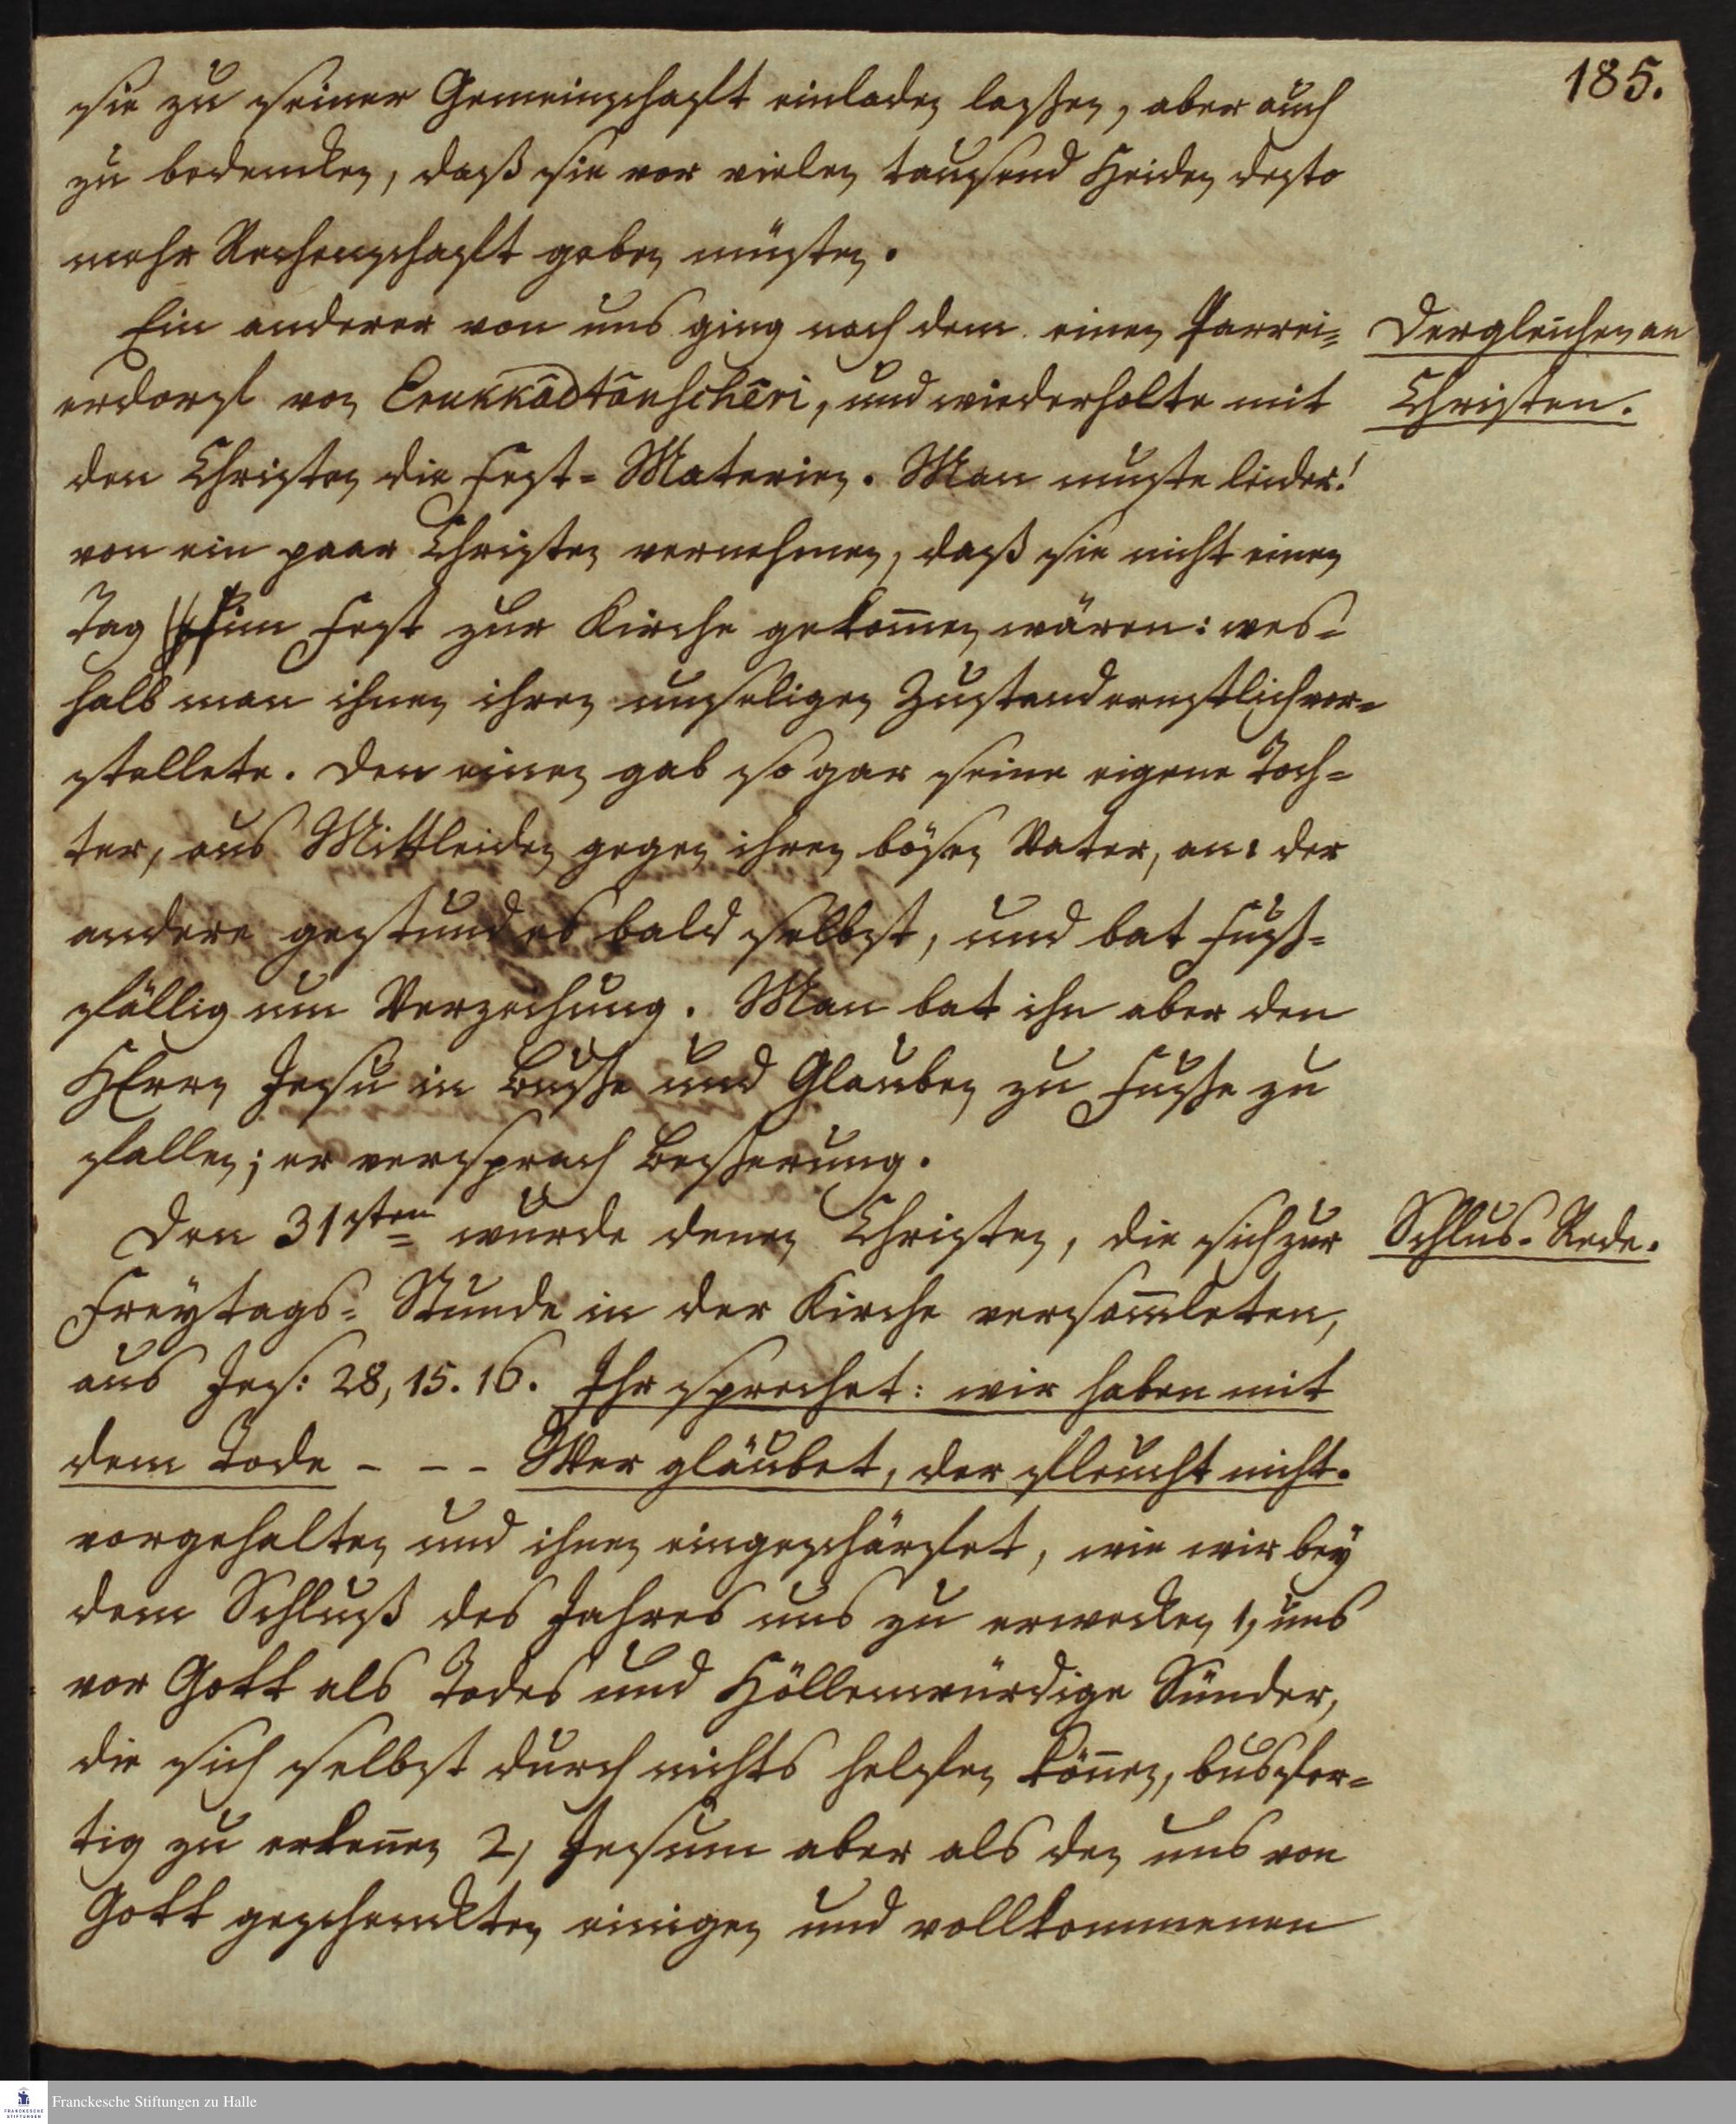 185.
sie zu seiner Gemeinschafft einladen lassen, aber auch
zu bedencken, daß sie vor vielen tausend Heiden desto
mehr Rechenschafft geben müsten.
Ein anderer von uns ging nach dem einen Parrei-
erdorf von Erukkadtânschêri, und wiederholte mit
den Christen die Fest-Materien. Man muste leider!
von ein paar Christen vernehmen, daß sie nicht einen
Tag im Fest zur Kirche gekom̅en wären: wes-
halb man ihnen ihren unseligen Zustand ernstlich vor-
stellete. Den einen gab so gar seine eigene Toch-
ter, aus Mittleiden gegen ihren bösen Vater, an: der
andere gestund es bald selbst, und bat fuß-
fällig um Verzeihung. Man bat ihn aber dem
HErrn Jesu in Busse und Glauben zu Fusse zu
fallen; er versprach Besserung.
Den 31sten wurde denen Christen, die sich zur
Freytags-Stunde in der Kirche versam̅leten,
aus Jes: 28, 15. 16. Ihr sprechet: wir haben mit
dem Tode - - - Wer gläubet, der fleucht nicht.
vorgehalten und ihnen eingeschärfet, wie wir bey
dem Schluß des Jahres uns zu erwecken 1, uns
vor Gott als Todes und Höllenwürdige Sünder,
die sich selbst durch nichts helfen kön̅en, busfer-
tig zu erken̅en 2, Jesum aber als den uns von
Gott geschenckten einigen und vollkommenen
Dergleichen an
Christen.
Schlus-Rede.
Franckesche Stiftungen zu Halle